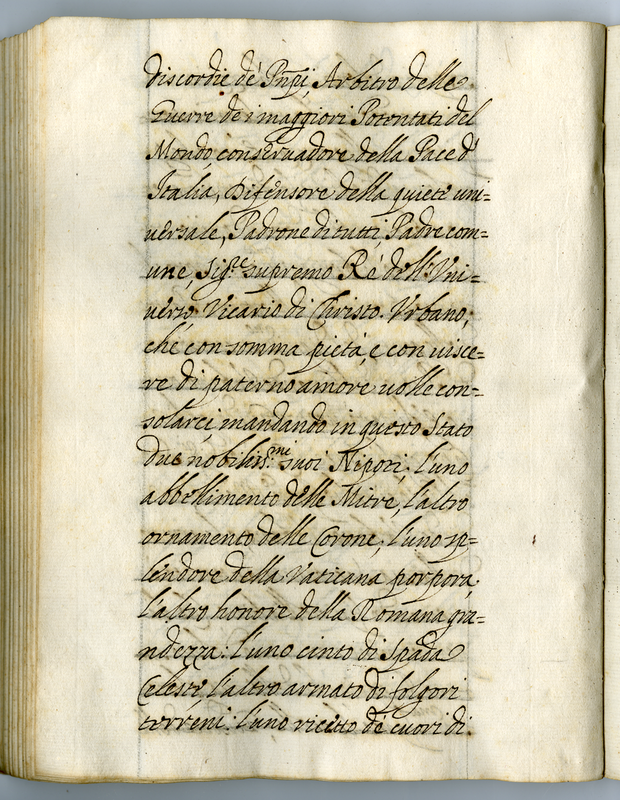 discordie de' Pnp̃i, Arbitro delle
Guerre de i maggiori Potentati del
Mondo, conseruadore della Pace d'
Italia, Difensore della quiete uni=
uersale, Padrone di tutti, Padre com=
une, Sig.re supremo Ré dell'Vni=
uerso Vicario di Christo. Vrbano,
che con somma pietà, e con uisce=
re di paterno amore uolle con=
solarci, mandando in questo Stato
due nobiliss.mi suoi Nepoti; l'uno
abbellimento delle Mitre, l'altro
ornamento delle Corone; l'uno sp=
lendore della Vaticana porpora,
l'altro honore della Romana gra=
ndezza: l'uno cinto di Spada
Celeste, l'altro armato di folgori
terreni: l'uno ricetto de cuori di